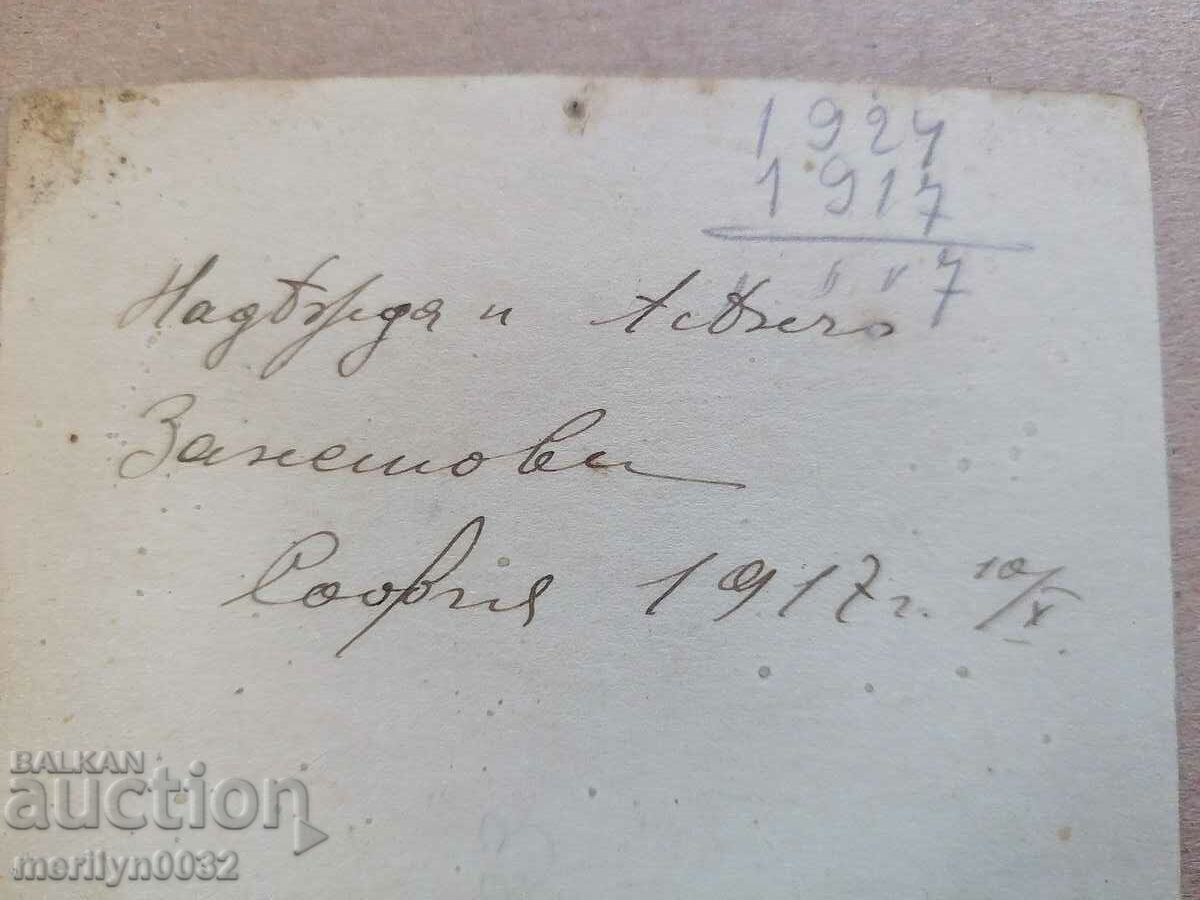 1924
1917
〃 〃 〃 7
Надѣжда и Асѣнчо
Занетови
София 1917 г. 10/X
BALKAN
auction
merilyn0032